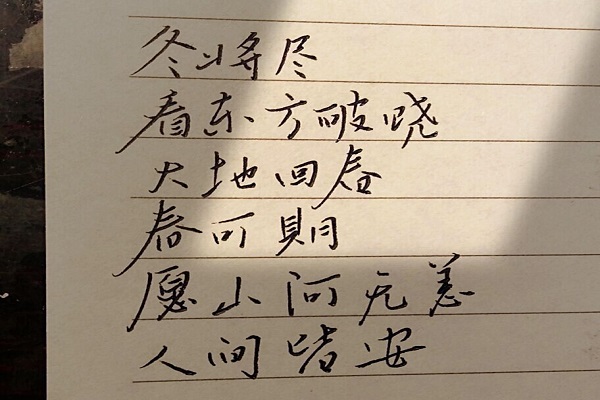 冬将尽
看东方破晓
大地回春
春可期
愿山河无恙
人间皆安